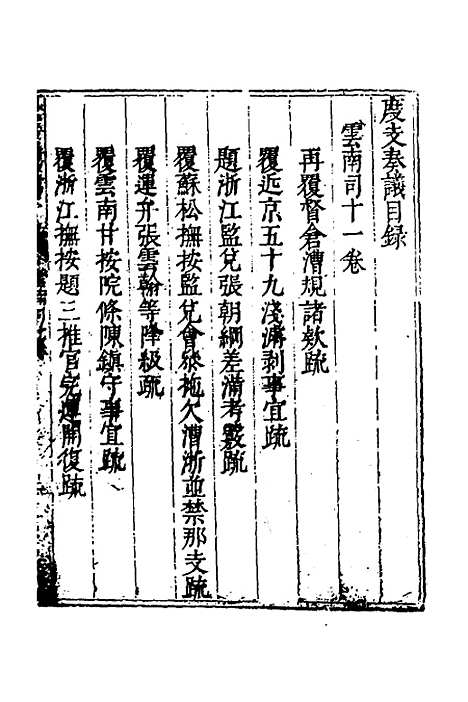 度支奏議目録
雲南司十一卷
再覆督倉漕規諸欵疏
覆近京五十九淺濟剥事宜疏
題浙江監兌張朝綱差滿考覈疏
覆蘇松撫按監兌會叅拖欠漕浙並禁那支疏
覆運弁張雲翰等降級疏
覆雲南甘按院條陳鎮守事宜疏
覆浙江撫按題三推官完運開復疏